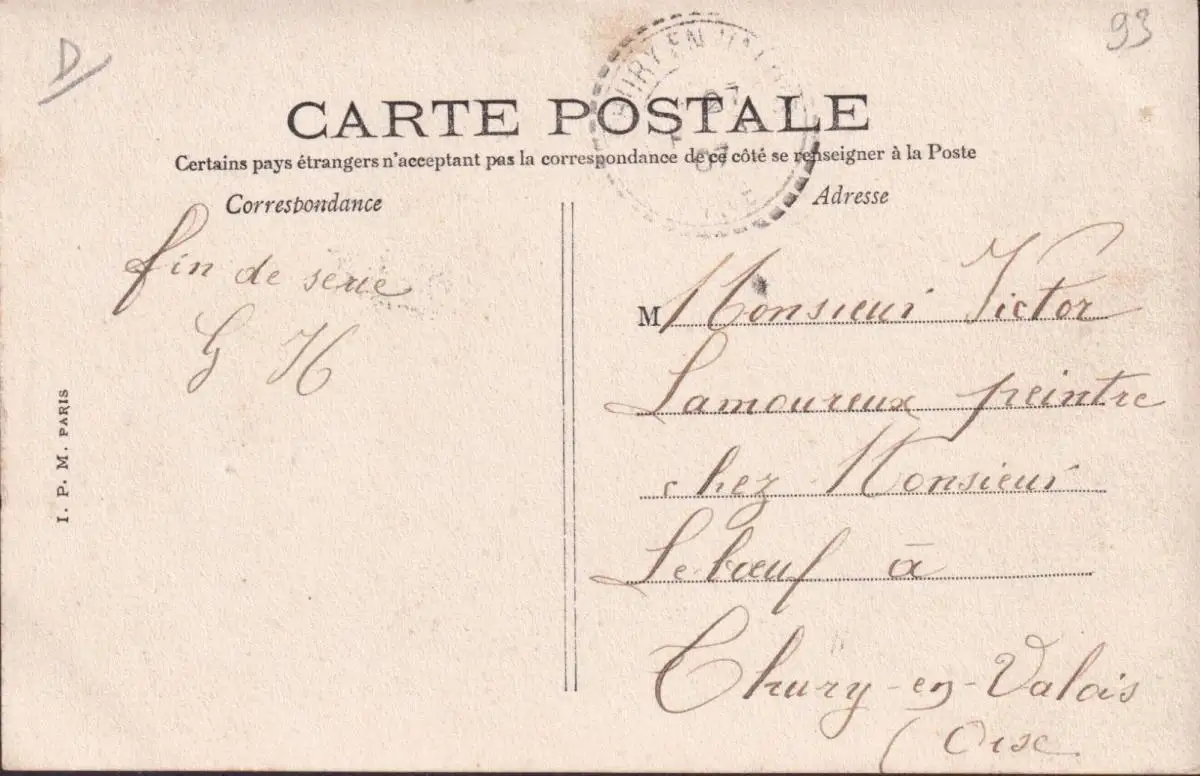 D
93
CARTE POSTALE
Certains pays étrangers n'acceptant pas la correspondance de ce côté se renseigner à la Poste
Correspondance
fin de serie
G H
I. P. M. PARIS
Adresse
M Monsieur Victor
Lamoureux peintre
chez Monsieur
Lebœuf à
Thury-en-Valois
(Oise